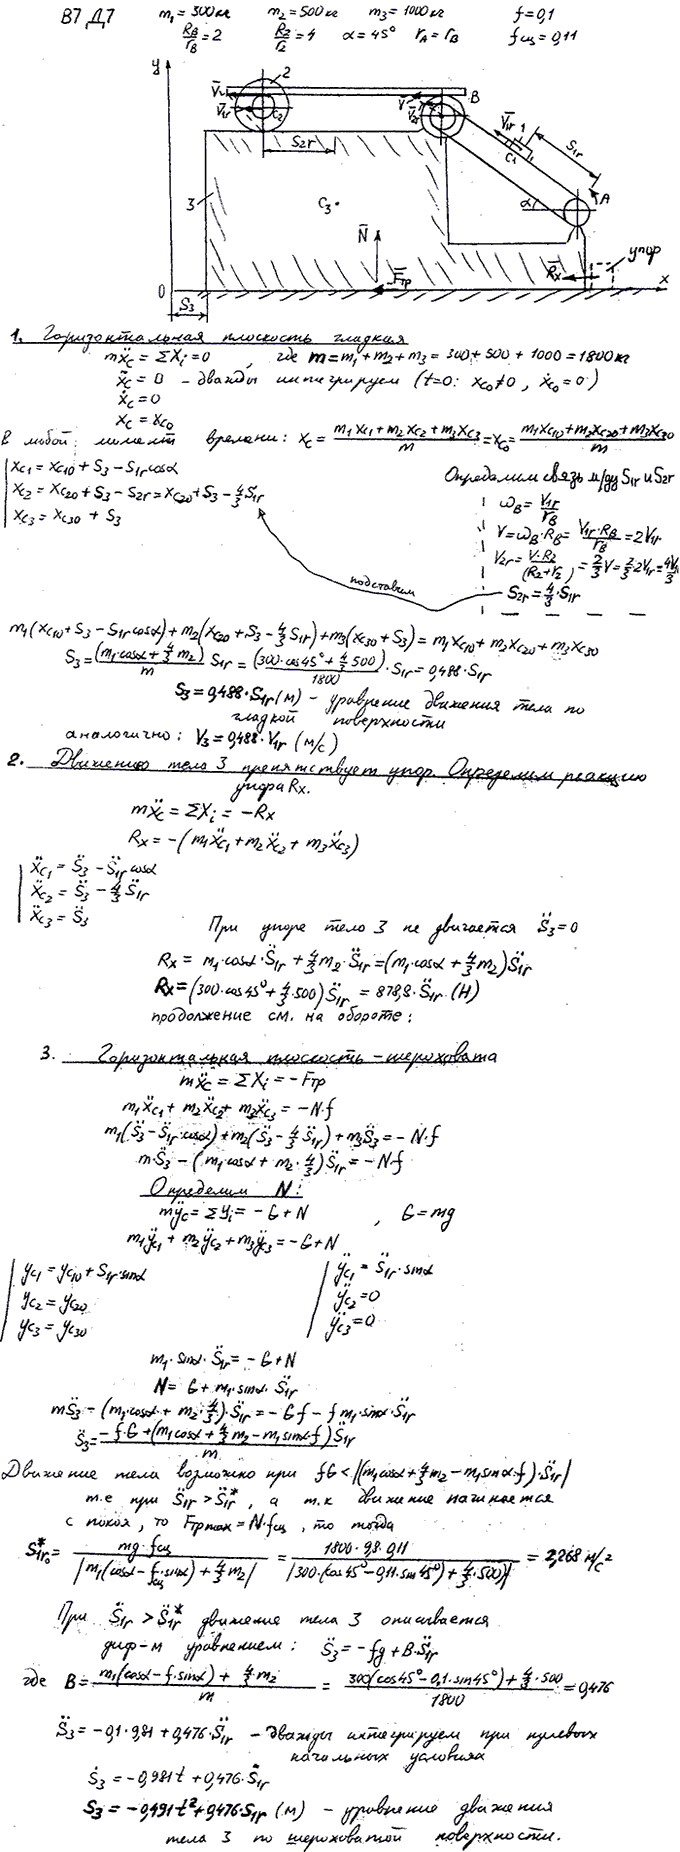 В7 Д7 m₁ = 300 кг m₂ = 500 кг m₃ = 1000 кг f = 0,1
R_B/r_B = 2 R₂/r₂ = 4 α = 45° r_A = r_B f_сц = 0,11
y
2
V̄
V̄₂r
C₂
V̄
V̄₂r
B
V̄₁r
1
S₁r
C₁
S₂r
A
α
3
C₃
N̄
упор
R̄x
F̄тр
0
x
S₃
1. Горизонтальная плоскость гладкая
mẍ_C = ΣXᵢ = 0, где m = m₁ + m₂ + m₃ = 300 + 500 + 1000 = 1800 кг
ẍ_C = 0 – дважды интегрируем (t=0: x_C0 ≠ 0, ẋ_C0 = 0)
ẋ_C = 0
x_C = x_C0
В любой момент времени: x_C = (m₁x_C1 + m₂x_C2 + m₃x_C3)/m = x_C0 = (m₁x_C10 + m₂x_C20 + m₃x_C30)/m
x_C1 = x_C10 + S₃ – S₁r cosα
x_C2 = x_C20 + S₃ – S₂r = x_C20 + S₃ – 4/3 S₁r
x_C3 = x_C30 + S₃
Определим связь м/ду S₁r и S₂r
ω_B = V₁r/r_B
V = ω_B·R_B = V₁r·R_B/r_B = 2V₁r
V₂r = V·R₂/(R₂+r₂) = 2/3 V = 2/3 2V₁r = 4V₁r/3
S₂r = 4/3·S₁r
подставим
m₁(x_C10 + S₃ – S₁r cosα) + m₂(x_C20 + S₃ – 4/3 S₁r) + m₃(x_C30 + S₃) = m₁x_C10 + m₂x_C20 + m₃x_C30
S₃ = (m₁·cosα + 4/3 m₂)/m S₁r = (300·cos45° + 4/3 500)/1800 · S₁r = 0,488·S₁r
S₃ = 0,488·S₁r (м) – уравнение движения тела по
гладкой поверхности
аналогично: V₃ = 0,488·V₁r (м/с)
2. Движению тела 3 препятствует упор. Определим реакцию
упора Rx.
mẍ_C = ΣXᵢ = –Rx
Rx = –(m₁ẍ_C1 + m₂ẍ_C2 + m₃ẍ_C3)
ẍ_C1 = S̈₃ – S̈₁r cosα
ẍ_C2 = S̈₃ – 4/3 S̈₁r
ẍ_C3 = S̈₃
При упоре тело 3 не двигается S̈₃ = 0
Rx = m₁·cosα·S̈₁r + 4/3 m₂·S̈₁r = (m₁cosα + 4/3 m₂)S̈₁r
Rx = (300·cos45° + 4/3·500)S̈₁r = 878,8·S̈₁r (Н)
продолжение см. на обороте:
3. Горизонтальная плоскость – шероховата
mẍ_C = ΣXᵢ = –Fтр
m₁ẍ_C1 + m₂ẍ_C2 + m₃ẍ_C3 = –N·f
m₁(S̈₃ – S̈₁r·cosα) + m₂(S̈₃ – 4/3 S̈₁r) + m₃S̈₃ = –N·f
m·S̈₃ – (m₁cosα + m₂·4/3)S̈₁r = –N·f
Определим N:
mÿ_C = ΣYᵢ = –G + N, G = mg
m₁ÿ_C1 + m₂ÿ_C2 + m₃ÿ_C3 = –G + N
y_C1 = y_C10 + S₁r·sinα
y_C2 = y_C20
y_C3 = y_C30
ÿ_C1 = S̈₁r·sinα
ÿ_C2 = 0
ÿ_C3 = 0
m₁·sinα·S̈₁r = –G + N
N = G + m₁·sinα·S̈₁r
mS̈₃ – (m₁·cosα + m₂·4/3)·S̈₁r = –Gf – fm₁·sinα·S̈₁r
S̈₃ = (–f·G + (m₁cosα + 4/3 m₂ – m₁sinα·f)S̈₁r)/m
Движение тела возможно при fG < |(m₁cosα + 4/3 m₂ – m₁sinα·f)·S̈₁r|
т.е при S̈₁r > S̈₁r*, а т.к движение начинается
с покоя, то Fтр max = N·f_сц, то тогда
S̈*₁r₀ = mg·f_сц/|m₁(cosα – f_сц·sinα) + 4/3 m₂| = 1800·9,8·0,11/|300·(cos45° – 0,11·sin45°) + 4/3·500| = 2,268 м/с²
При S̈₁r > S̈₁r* движение тела 3 описывается
диф-м уравнением: S̈₃ = –fg + B·S̈₁r
где B = (m₁(cosα – f·sinα) + 4/3·m₂)/m = (300(cos45° – 0,1·sin45°) + 4/3·500)/1800 = 0,476
S̈₃ = –0,1·9,81 + 0,476·S̈₁r – дважды интегрируем при нулевых
начальных условиях
Ṡ₃ = –0,981t + 0,476·Ṡ₁r
S₃ = –0,491t² + 0,476·S₁r (м) – уравнение движения
тела 3 по шероховатой поверхности.